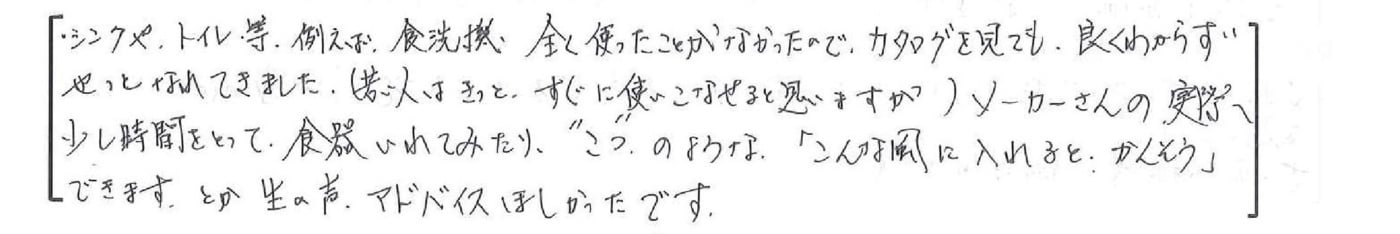 ・シンクや、トイレ等、例えば、食洗機、全く使ったことがなかったので、カタログを見ても、良くわからずい
やっとなれてきました。(若い人はきっと、すぐに使いこなせると思いますが)メーカーさんの実際、
少し時間をとって、食器いれてみたり、"こつ"のような、「こんな風に入れると、かんそう」
できます。とか生の声、アドバイスほしかったです。